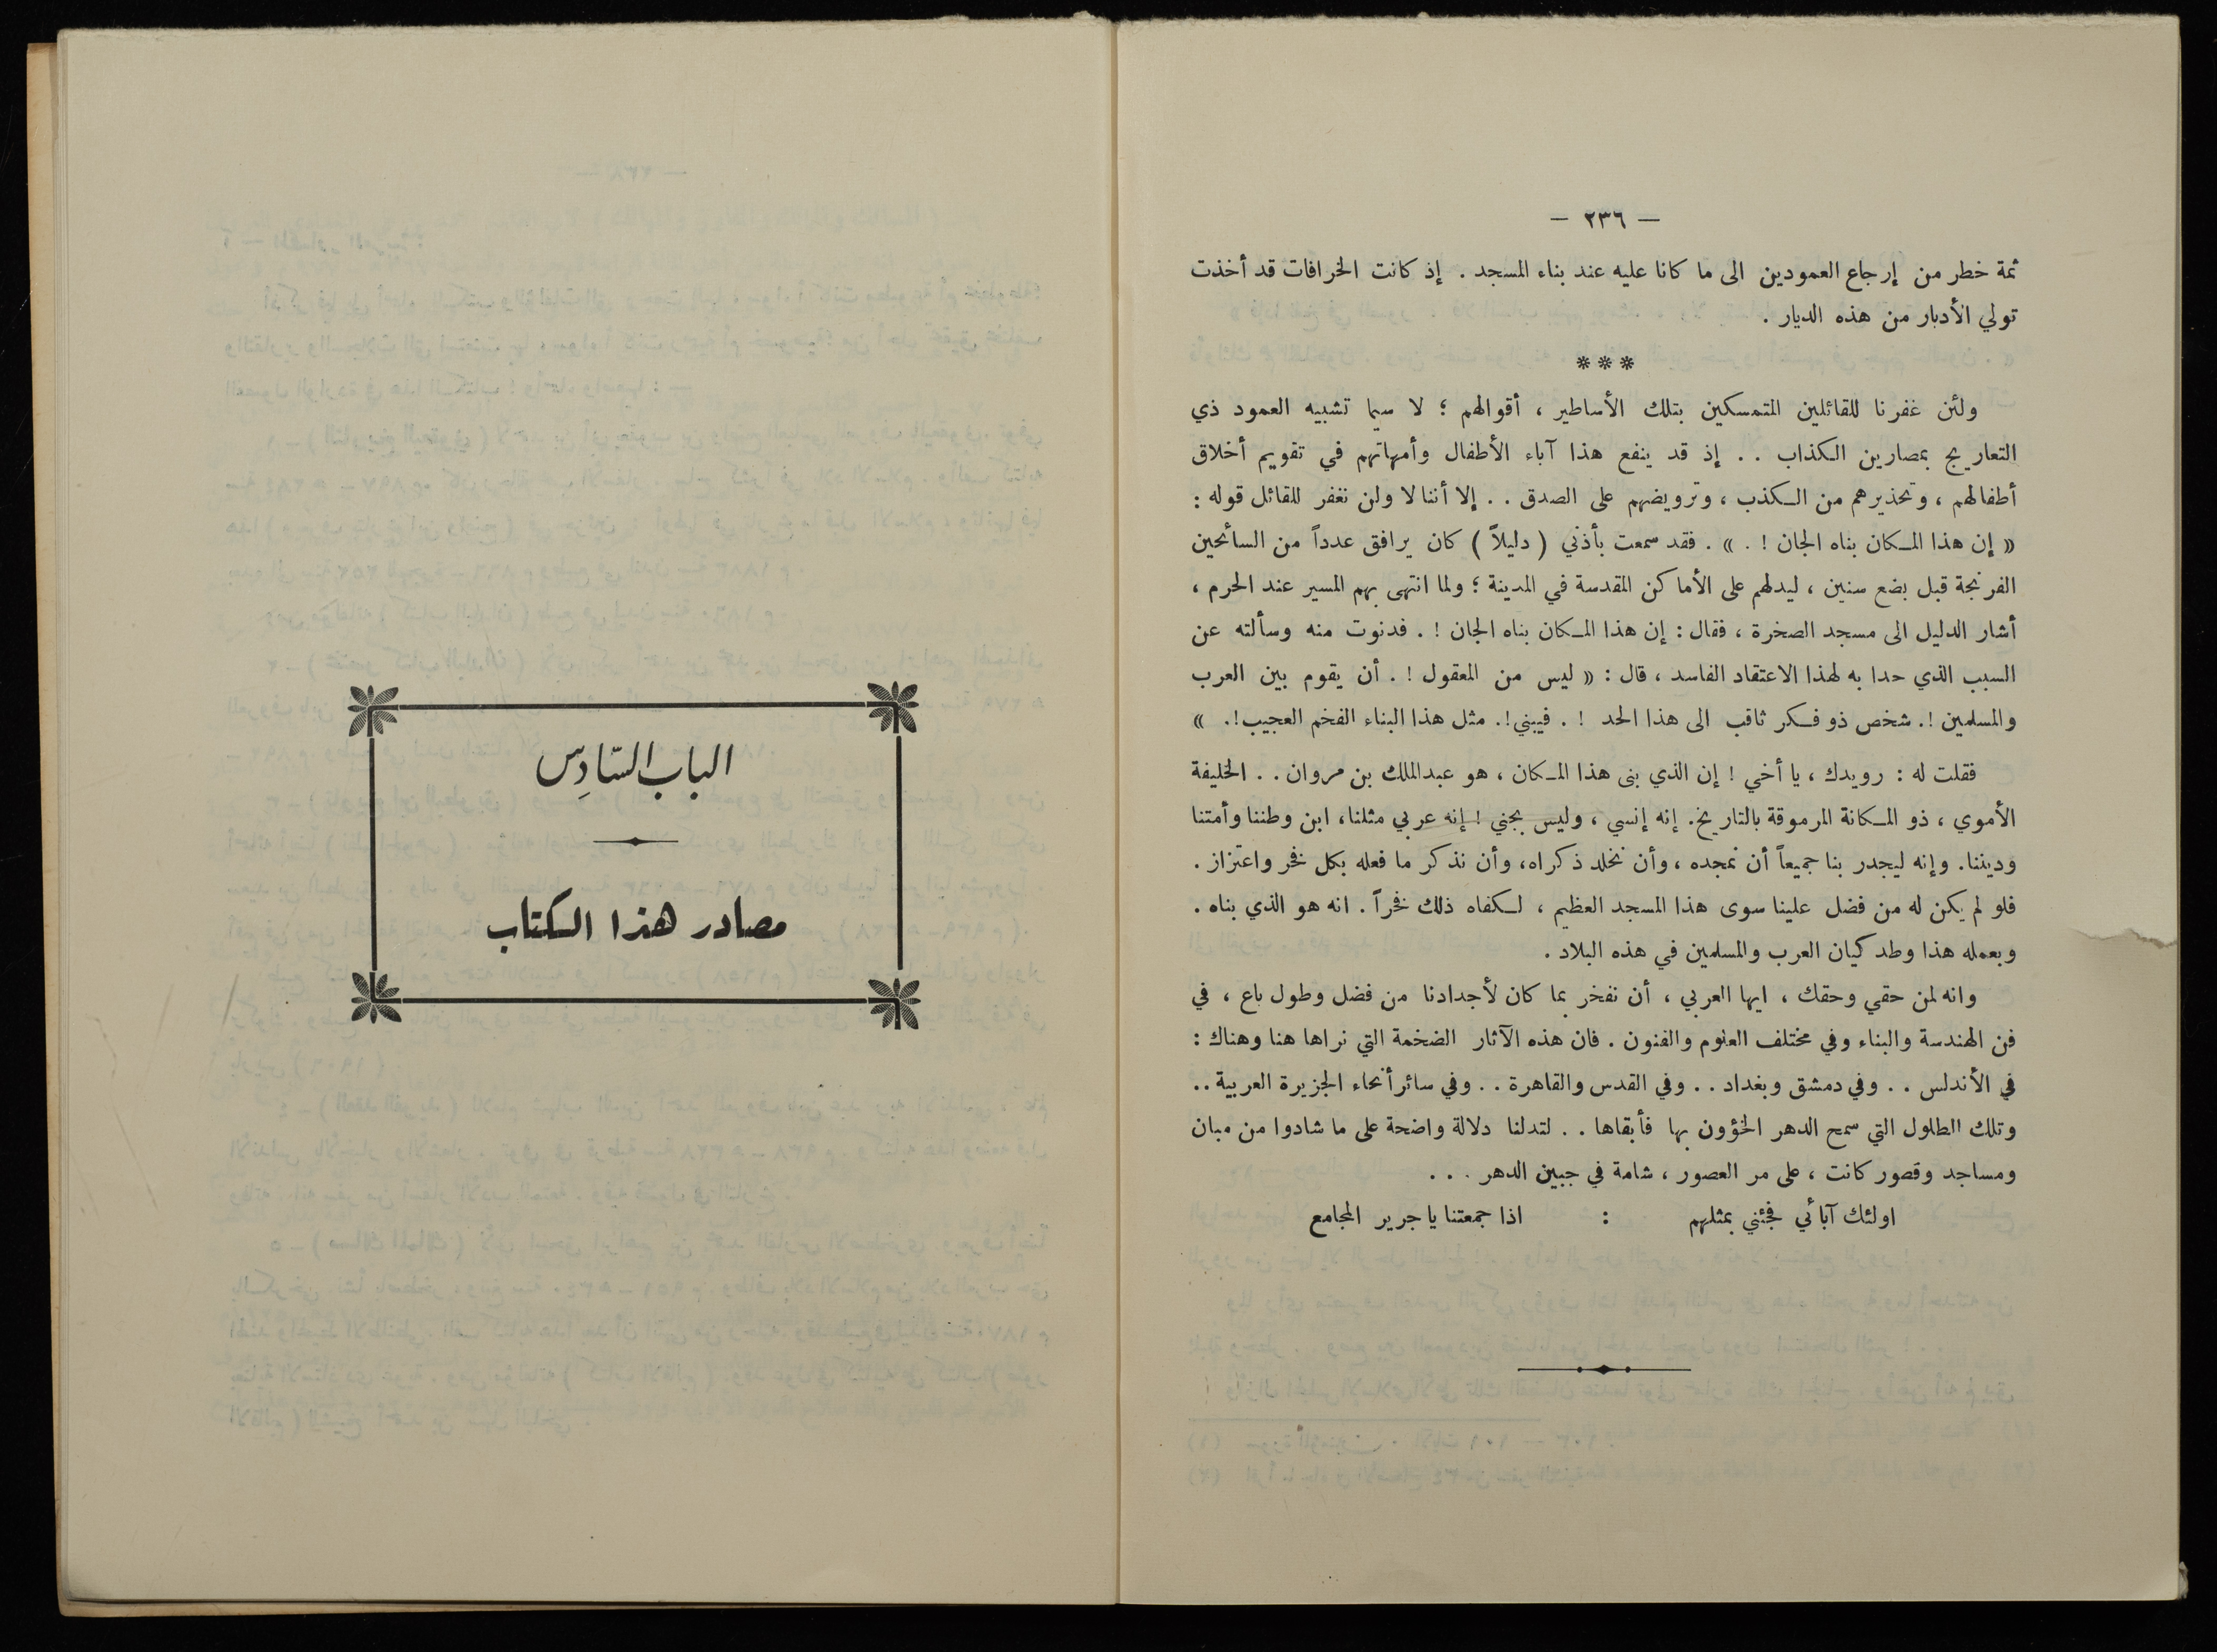 — ٢٣٦ —
ثمة خطر من إرجاع العمودين الى ما كانا عليه عند بناء المسجد . إذ كانت الخرافات قد أخذت
تولي الأدبار من هذه الديار .
***
ولئن غفرنا للقائلين المتمسكين بتلك الأساطير ، أقوالهم ؛ لا سيما تشبيه العمود ذي
التعاريج بمصارين الكذاب . . إذ قد ينفع هذا آباء الأطفال وأمهاتهم في تقويم أخلاق
أطفالهم ، وتحذيرهم من الكذب ، وترويضهم على الصدق . . إلا أننا لا ولن نغفر للقائل قوله :
« إن هذا المكان بناه الجان ! . » . فقد سمعت بأذني ( دليلاً ) كان يرافق عدداً من السائحين
الفرنجة قبل بضع سنين ، ليدلهم على الأماكن المقدسة في المدينة ؛ ولما انتهى بهم المسير عند الحرم ،
أشار الدليل الى مسجد الصخرة ، فقال : إن هذا المكان بناه الجان ! . فدنوت منه وسألته عن
السبب الذي حدا به لهذا الاعتقاد الفاسد ، قال : « ليس من المعقول ! . أن يقوم بين العرب
والمسلمين ! . شخص ذو فكر ثاقب الى هذا الحد ! . فيبني ! . مثل هذا البناء الفخم العجيب ! . »
فقلت له : رويدك ، يا أخي ! إن الذي بنى هذا المكان ، هو عبدالملك بن مروان . . الخليفة
الأموي ، ذو المكانة المرموقة بالتاريخ . إنه إنسي ، وليس بجني ! إنه عربي مثلنا ، ابن وطننا وأمتنا
وديننا . وإنه ليجدر بنا جميعاً أن نمجده ، وأن نخلد ذكراه ، وأن نذكر ما فعله بكل فخر واعتزاز .
فلو لم يكن له من فضل علينا سوى هذا المسجد العظيم ، لكفاه ذلك فخراً . انه هو الذي بناه .
وبعمله هذا وطد كيان العرب والمسلمين في هذه البلاد .
وانه لمن حقي وحقك ، ايها العربي ، أن نفخر بما كان لأجدادنا من فضل وطول باع ، في
فن الهندسة والبناء وفي مختلف العلوم والفنون . فان هذه الآثار الضخمة التي نراها هنا وهناك :
في الأندلس . . وفي دمشق وبغداد . . وفي القدس والقاهرة . . وفي سائر أنحاء الجزيرة العربية . .
وتلك الطلول التي سمح الدهر الخؤون بها فأبقاها . . لتدلنا دلالة واضحة على ما شادوا من مبان
ومساجد وقصور كانت ، على مر العصور ، شامة في جبين الدهر . . .
اولئك آبائي فجئني بمثلهم : اذا جمعتنا يا جرير المجامع
الباب السَّادِس
مصادر هذا الكتاب